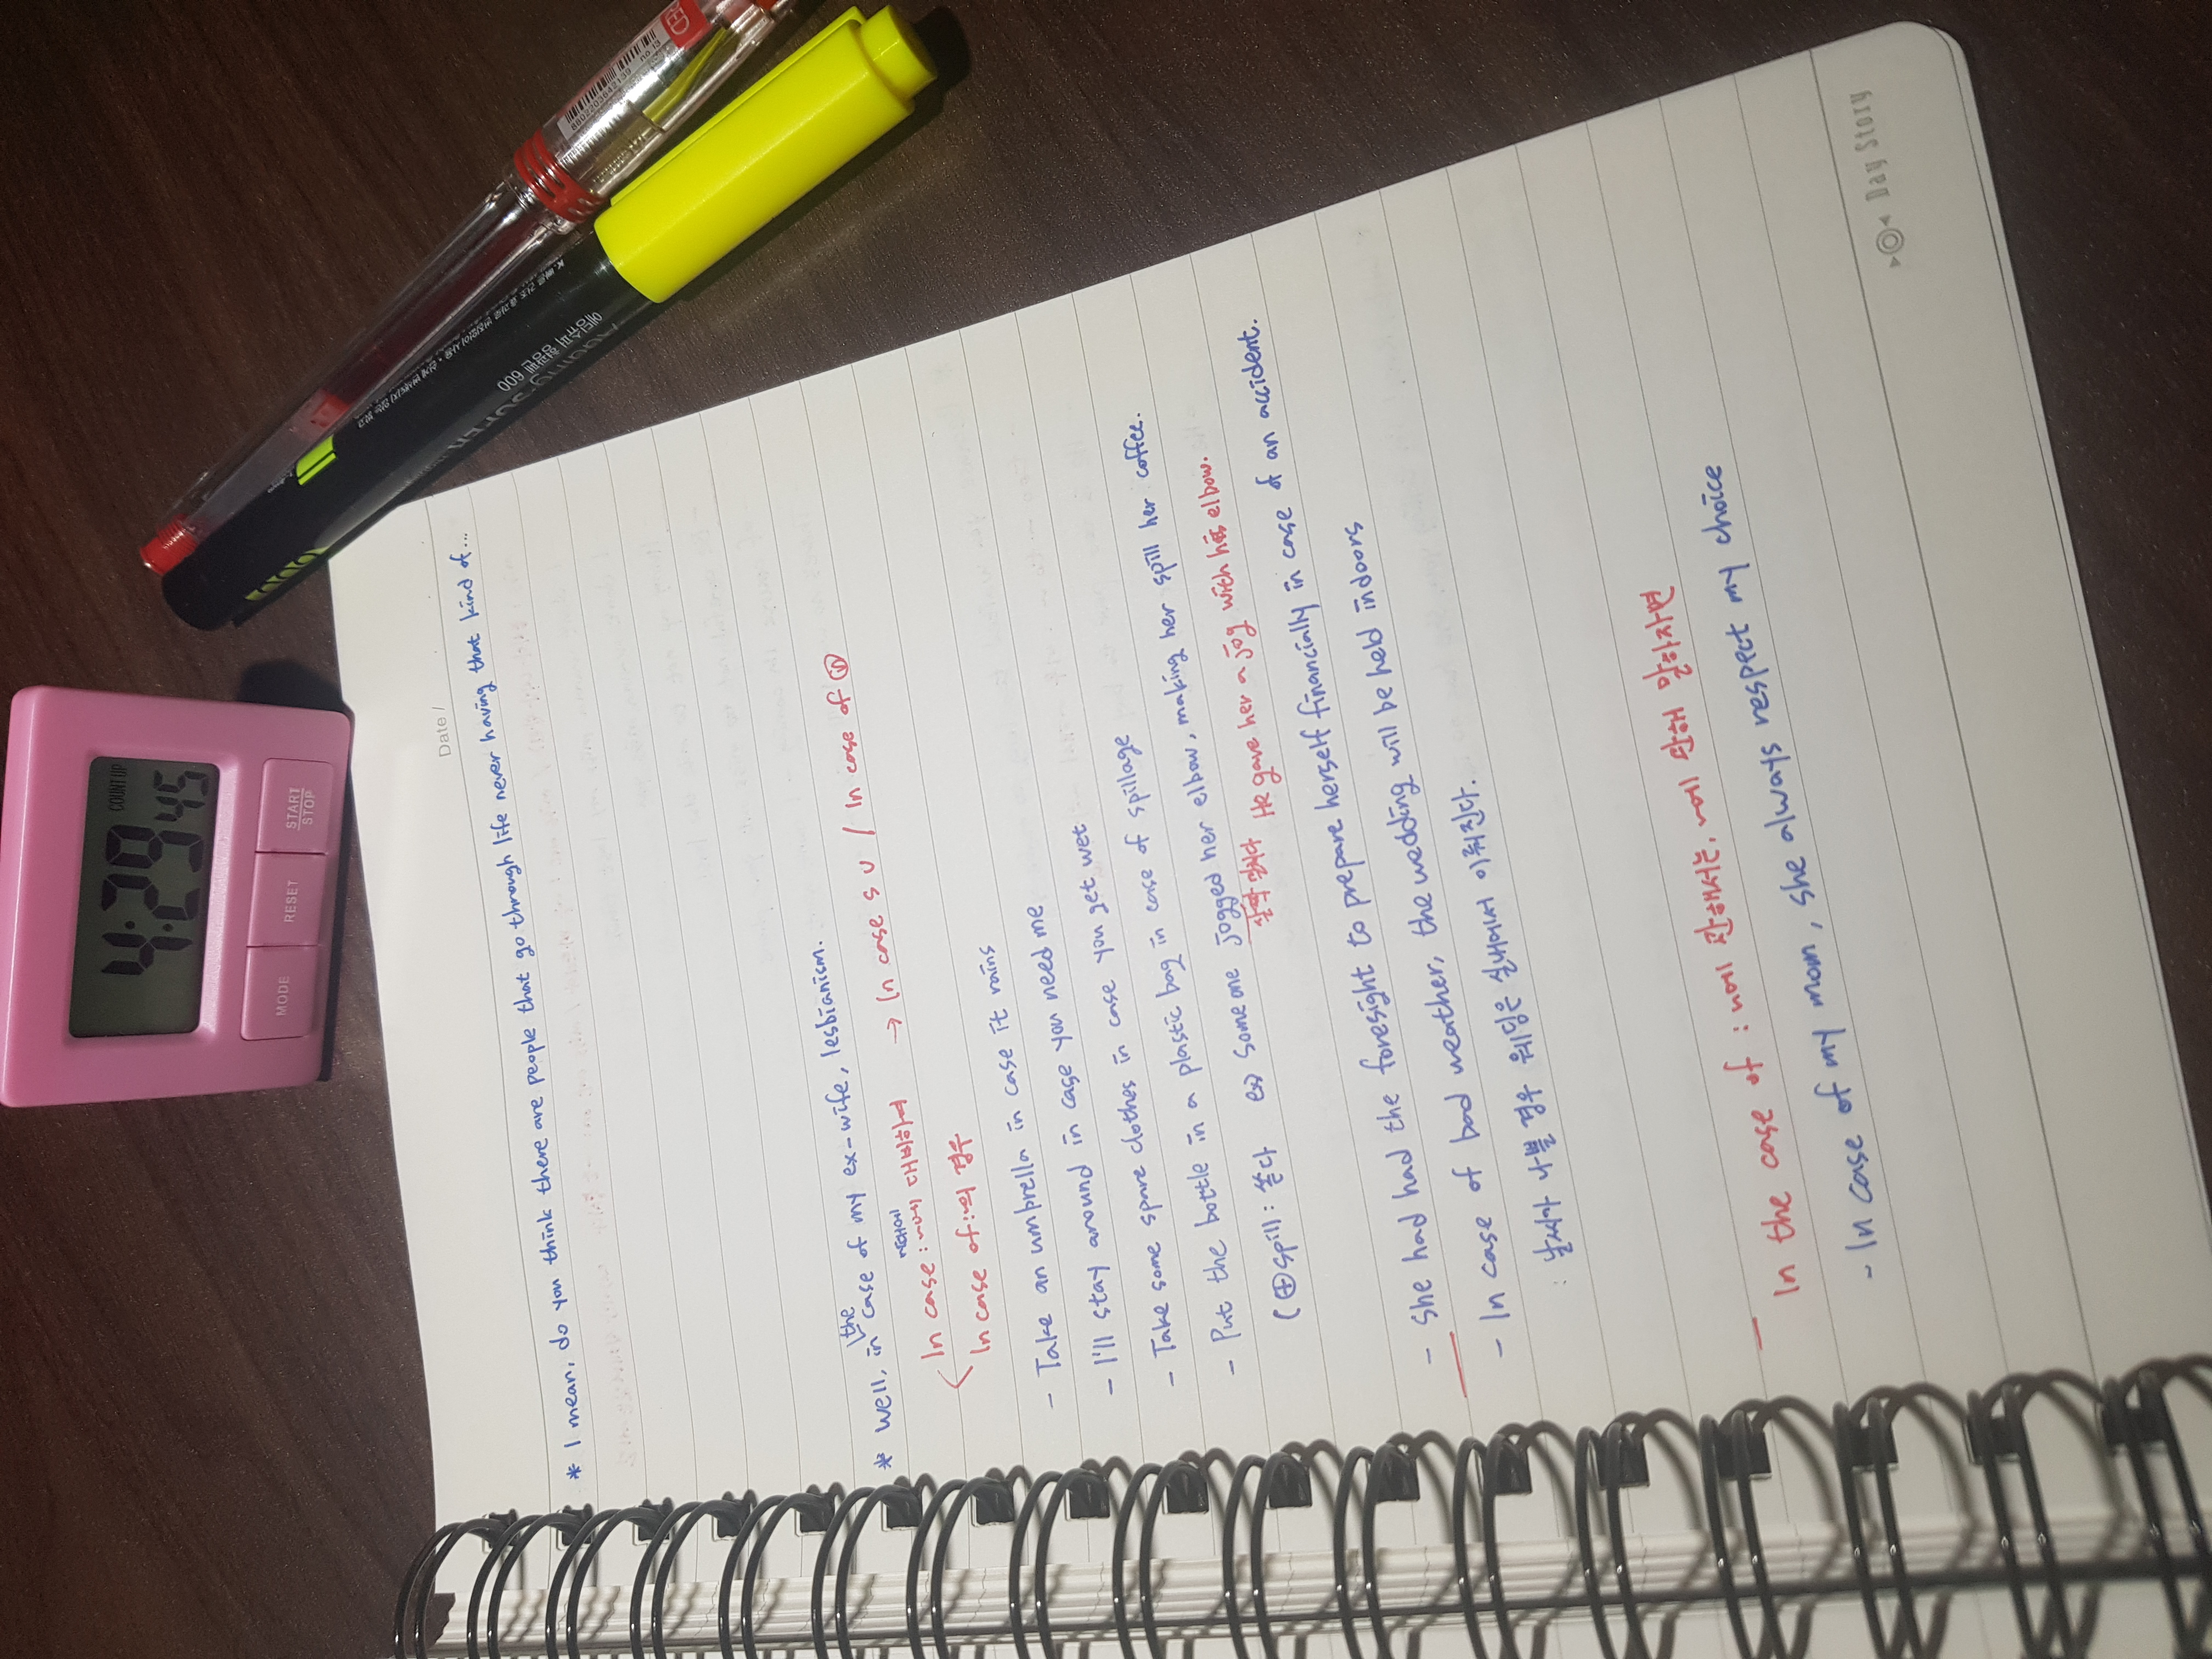 Date /
* I mean, do you think there are people that go through life never having that kind of...
the
* Well, in case of my ex-wife, lesbianism.
In case : ~에 대비하여 → In case s v / In case of ⓝ
In case of : ~의 경우
- Take an umprella in case it rains
- I'll stay around in case you need me
- Take some spare clothes in case you get wet
- Put the bottle in a plastic bag in case of spillage
(⊕ spill : 쏟다 ex) Someone jogged her elbow, making her spill her coffee.
살짝 밀치다 He gave her a jog with his elbow.
- She had had the foresight to prepare herself financially in case of an accident.
- In case of bad weather, the wedding will be held indoors
: 날씨가 나쁠 경우 웨딩은 실내에서 이뤄진다.
In the case of : ~에 관해서는, ~에 관해 말하자면
- In case of my mom, she always respect my choice
Day Story
4:29 45
COUNT UP
MODE
RESET
START
STOP
형광펜 600
8802203642139
no.13